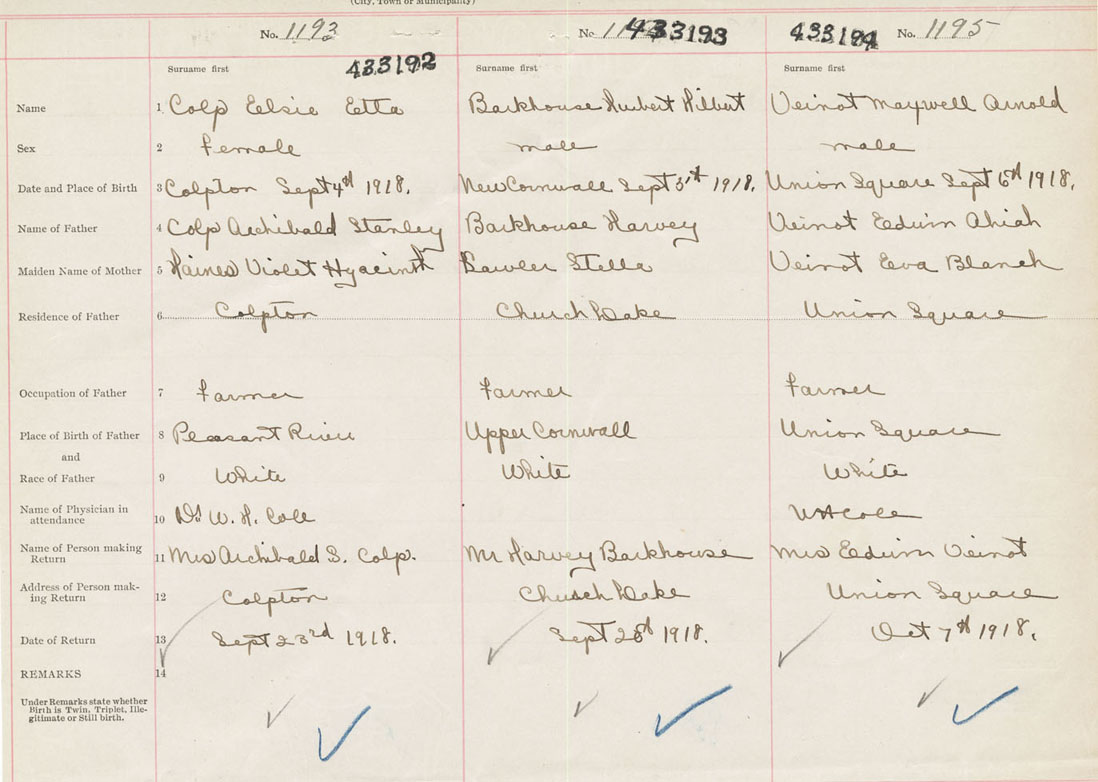 (City, Town or Municipality)
No. 1193 No 433193 433194 No. 1195
433192
Surname first Surname first Surname first
Name 1 Colp Eelsie Etta Barkhouse Hubert Hilbert Veinot Maywell Arnold
Sex 2 Female male male
Date and Place of Birth 3 Colpton Sept 4th 1918. New Cornwall Sept 5th 1918. Union Square Sept 6th 1918.
Name of Father 4 Colp Archibald Stanley Barkhouse Harvey Veinot Eedwin Ahiah
Maiden Name of Mother 5 Haines Violet Hyacinth Stella Veinot Eva Blanch
Residence of Father 6 Colpton Church Lake Union Square
Occupation of Father 7 Farmer Farmer Farmer
Place of Birth of Father 8 Pleasant River Upper Cornwall Union Square
and
Race of Father 9 White White White
Name of Physician in
attendance 10 Dr W. H. Cole W H Cole
Name of Person making
Return 11 Mrs Archibald S. Colp. Mr Harvey Barkhouse Mrs Eedwin Veinot
Address of Person mak-
ing Return 12 Colpton Church Lake Union Square
Date of Return 13 Sept 23rd 1918. Sept 28th 1918. Oct 7th 1918.
REMARKS 14
Under Remarks state whether
Birth is Twin, Triplet, Ille-
gitimate or Still birth.